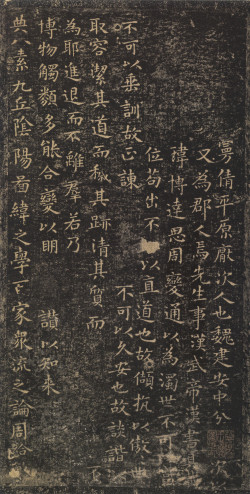 倩平原厭次人也魏建安中分 次
又為郡人焉先生事漢武帝漢書
瑋博達思周變通以為濁世不可
位苟出不 以直道也故頡抗以傲世
不可以垂訓故正諫 不可以久安也故談諧
取容潔其道而穢其跡清其質而
為耶進退而不離羣若乃
博物觸類多能合變以明 讚以知來
典八素九丘陰陽啚緯之學百家眾流之論周給